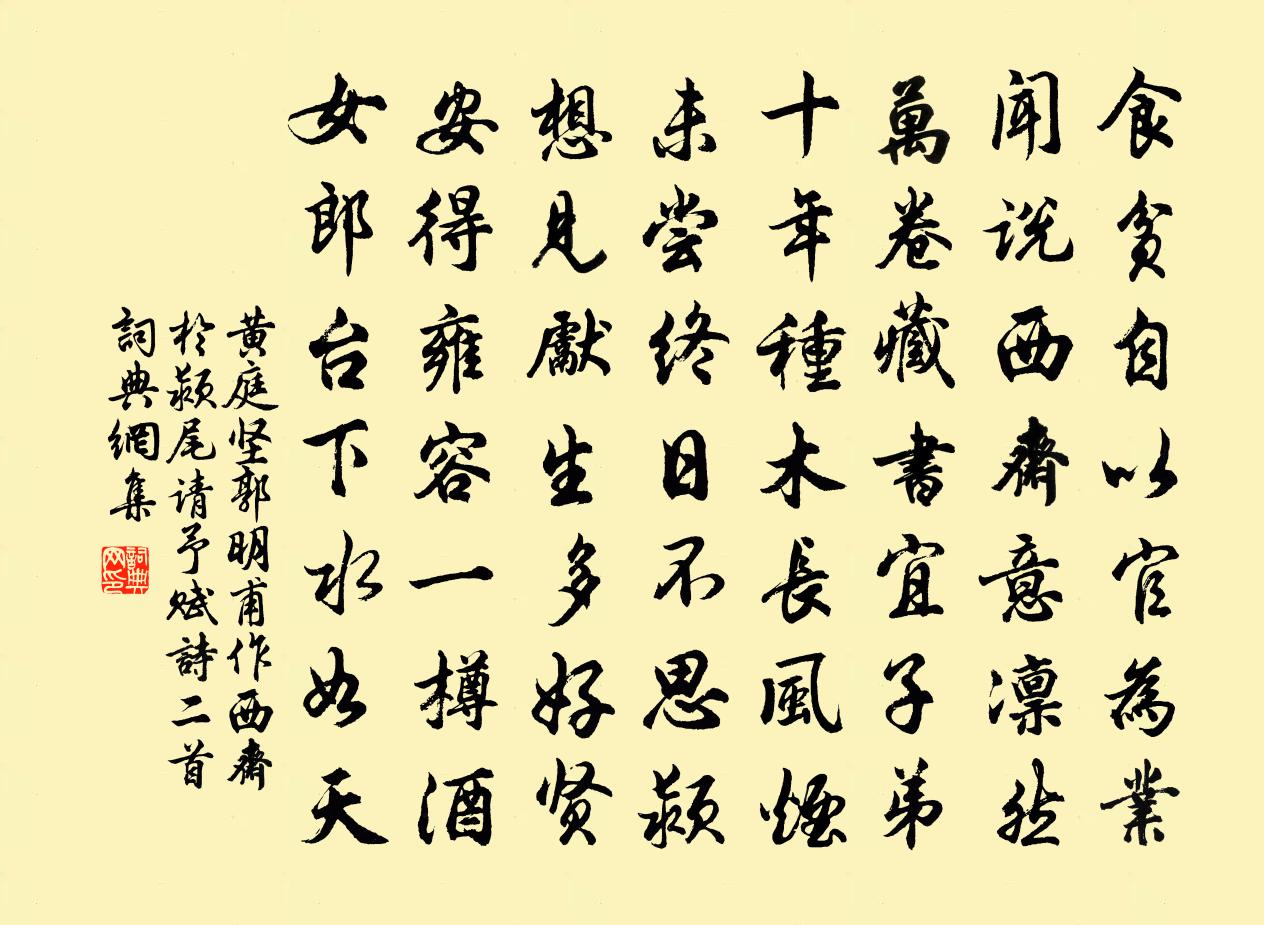 食貧自以官為業
闻说西齋意凛然
萬卷藏書宜子弟
十年種木長風煙
未尝终日不思颍
想見獻生多好贤
安得雍容一樽酒
女郎台下水如天
黄庭坚郭明甫作西齋
於颍尾请予赋詩二首
詞典網集
詞典网印